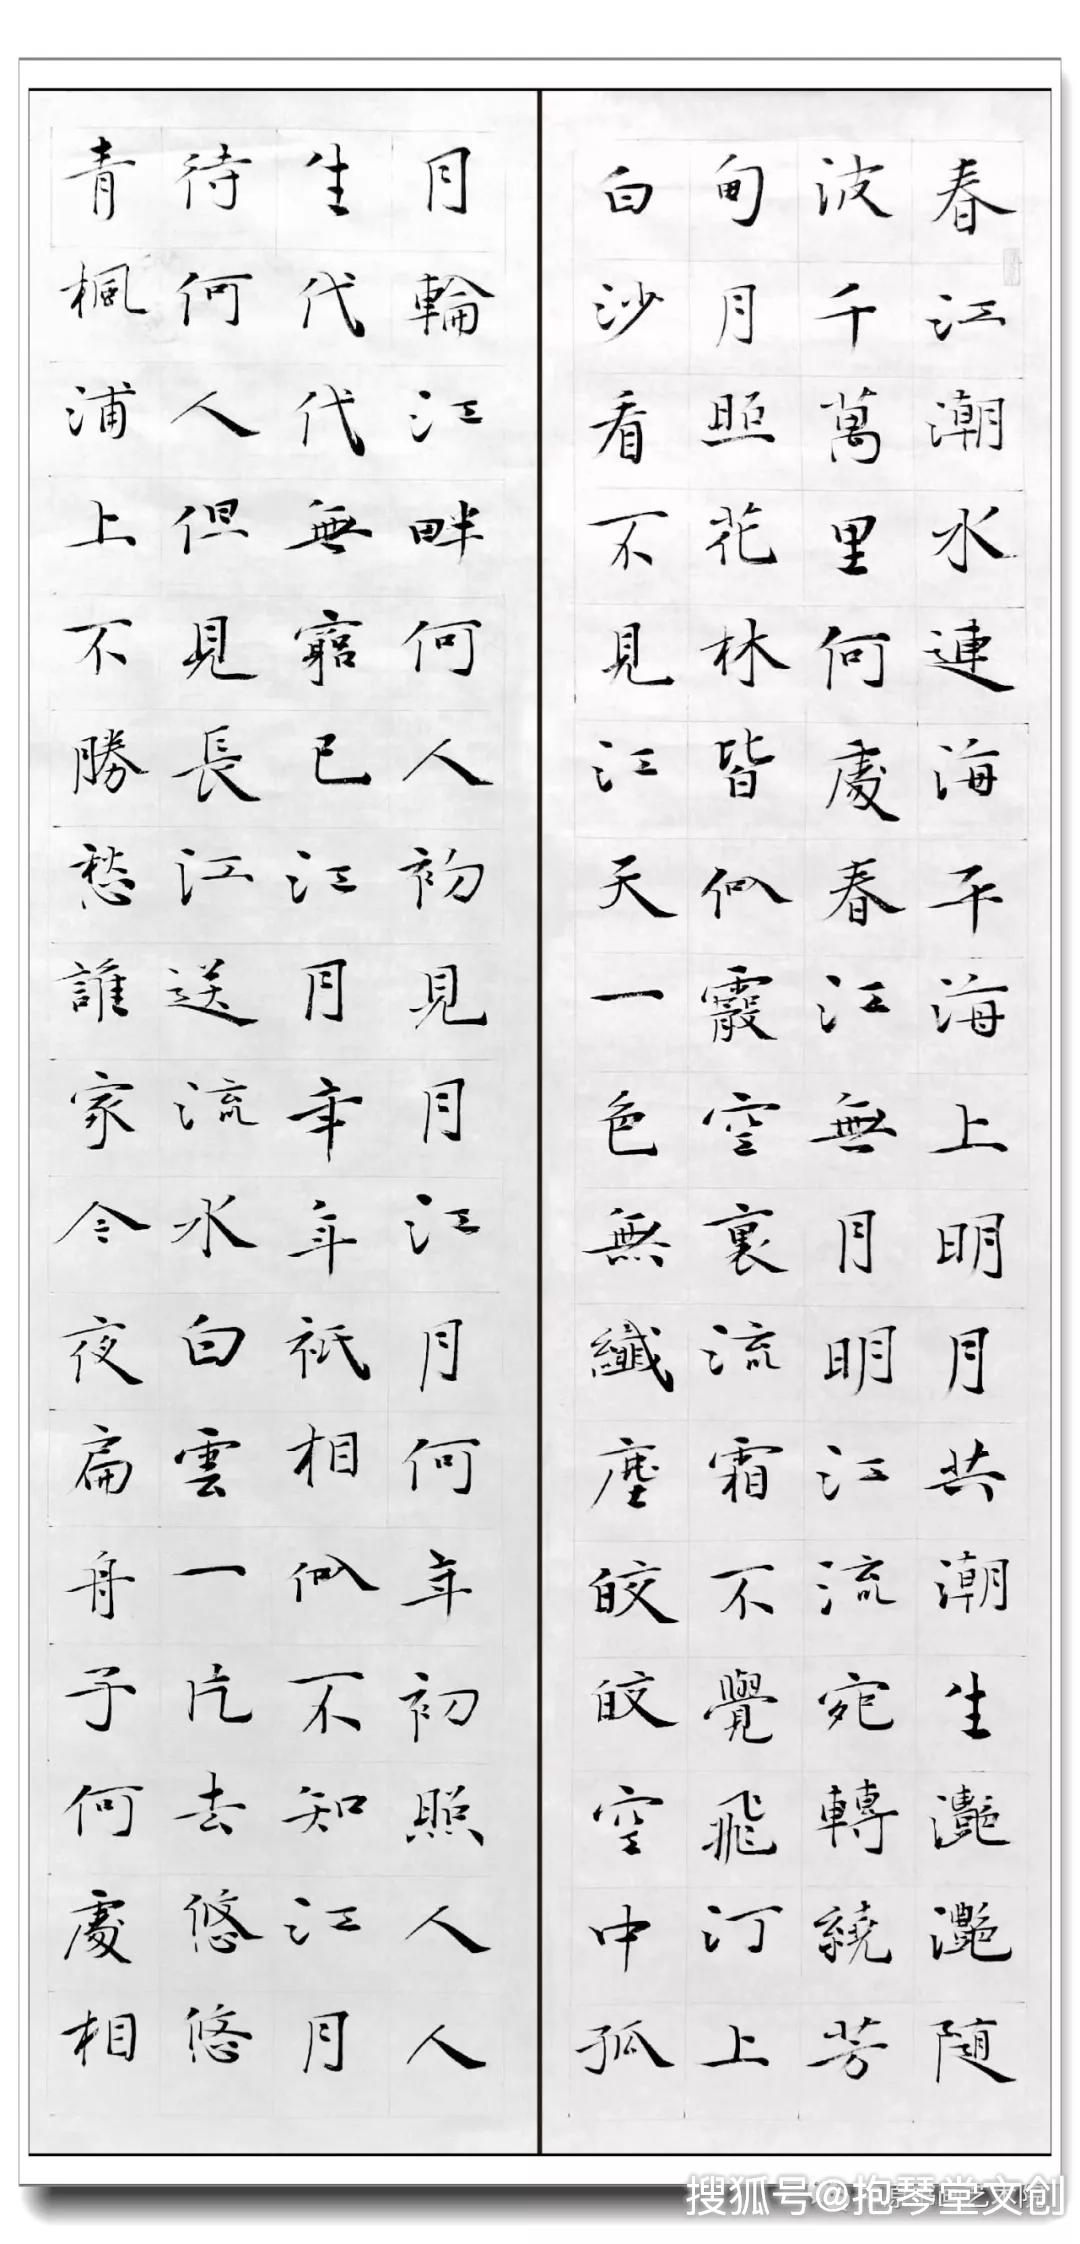 春江潮水連海平海上明月共潮生灧灧随
波千萬里何處春江無月明江流宛轉繞芳
甸月照花林皆似霰空裏流霜不覺飛汀上
白沙看不見江天一色無纖塵皎皎空中孤
月輪江畔何人初見月江月何年初照人人
生代代無窮已江月年年祇相似不知江月
待何人但見長江送流水白雲一片去悠悠
青楓浦上不勝愁誰家今夜扁舟子何處相
搜狐号@抱琴堂文创